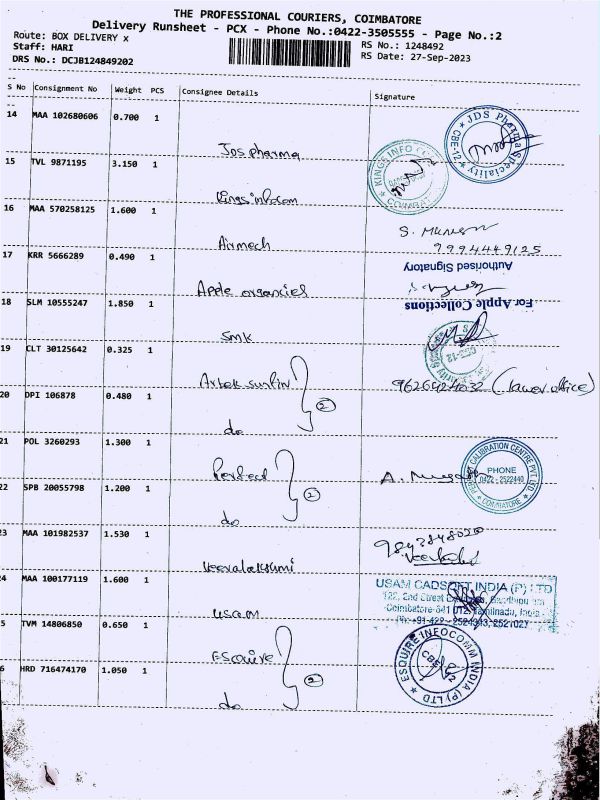 THE PROFESSIONAL COURIERS, COIMBATORE
Delivery Runsheet - PCX - Phone No.:0422-3505555 - Page No.:2
Route: BOX DELIVERY x
Staff: HARI
DRS No.: DCJB124849202
RS No.: 1248492
RS Date: 27-Sep-2023
S No Consignment No Weight PCS Consignee Details Signature
14 MAA 102680606 0.700 1
Jos pharma
JDS Pharma Speciality CBE-12
15 TVL 9871195 3.150 1
Kings infocom
KINGS INFO COIMBAT
16 MAA 570258125 1.600 1
Airmech
S. Murugan
9994449125
17 KRR 5666289 0.490 1
Apple organcies
Authorised Signatory
For Apple Collections
18 SLM 10555247 1.850 1
SMK
19 CLT 30125642 0.325 1
20 DPI 106878 0.480 1
do
2
21 POL 3260293 1.300 1
A.
CALIBRATION CENTRE PVT LTD
PHONE
0422 - 2522440
COIMBATORE
22 SPB 20055798 1.200 1
do
2
23 MAA 101982537 1.530 1
Veeralakshmi
24 MAA 100177119 1.600 1
usam
USAM CADSOFT INDIA (P) LTD
122, 2nd Street
Coimbatore-641 012 Tamilnadu, India
Ph: +91-422 - 2524943, 2521027
5 TVM 14806850 0.650 1
Esquire
ESQUIRE INFOCOMM INDIA (P) LTD
CBE-12
6 HRD 716474170 1.050 1
do
2